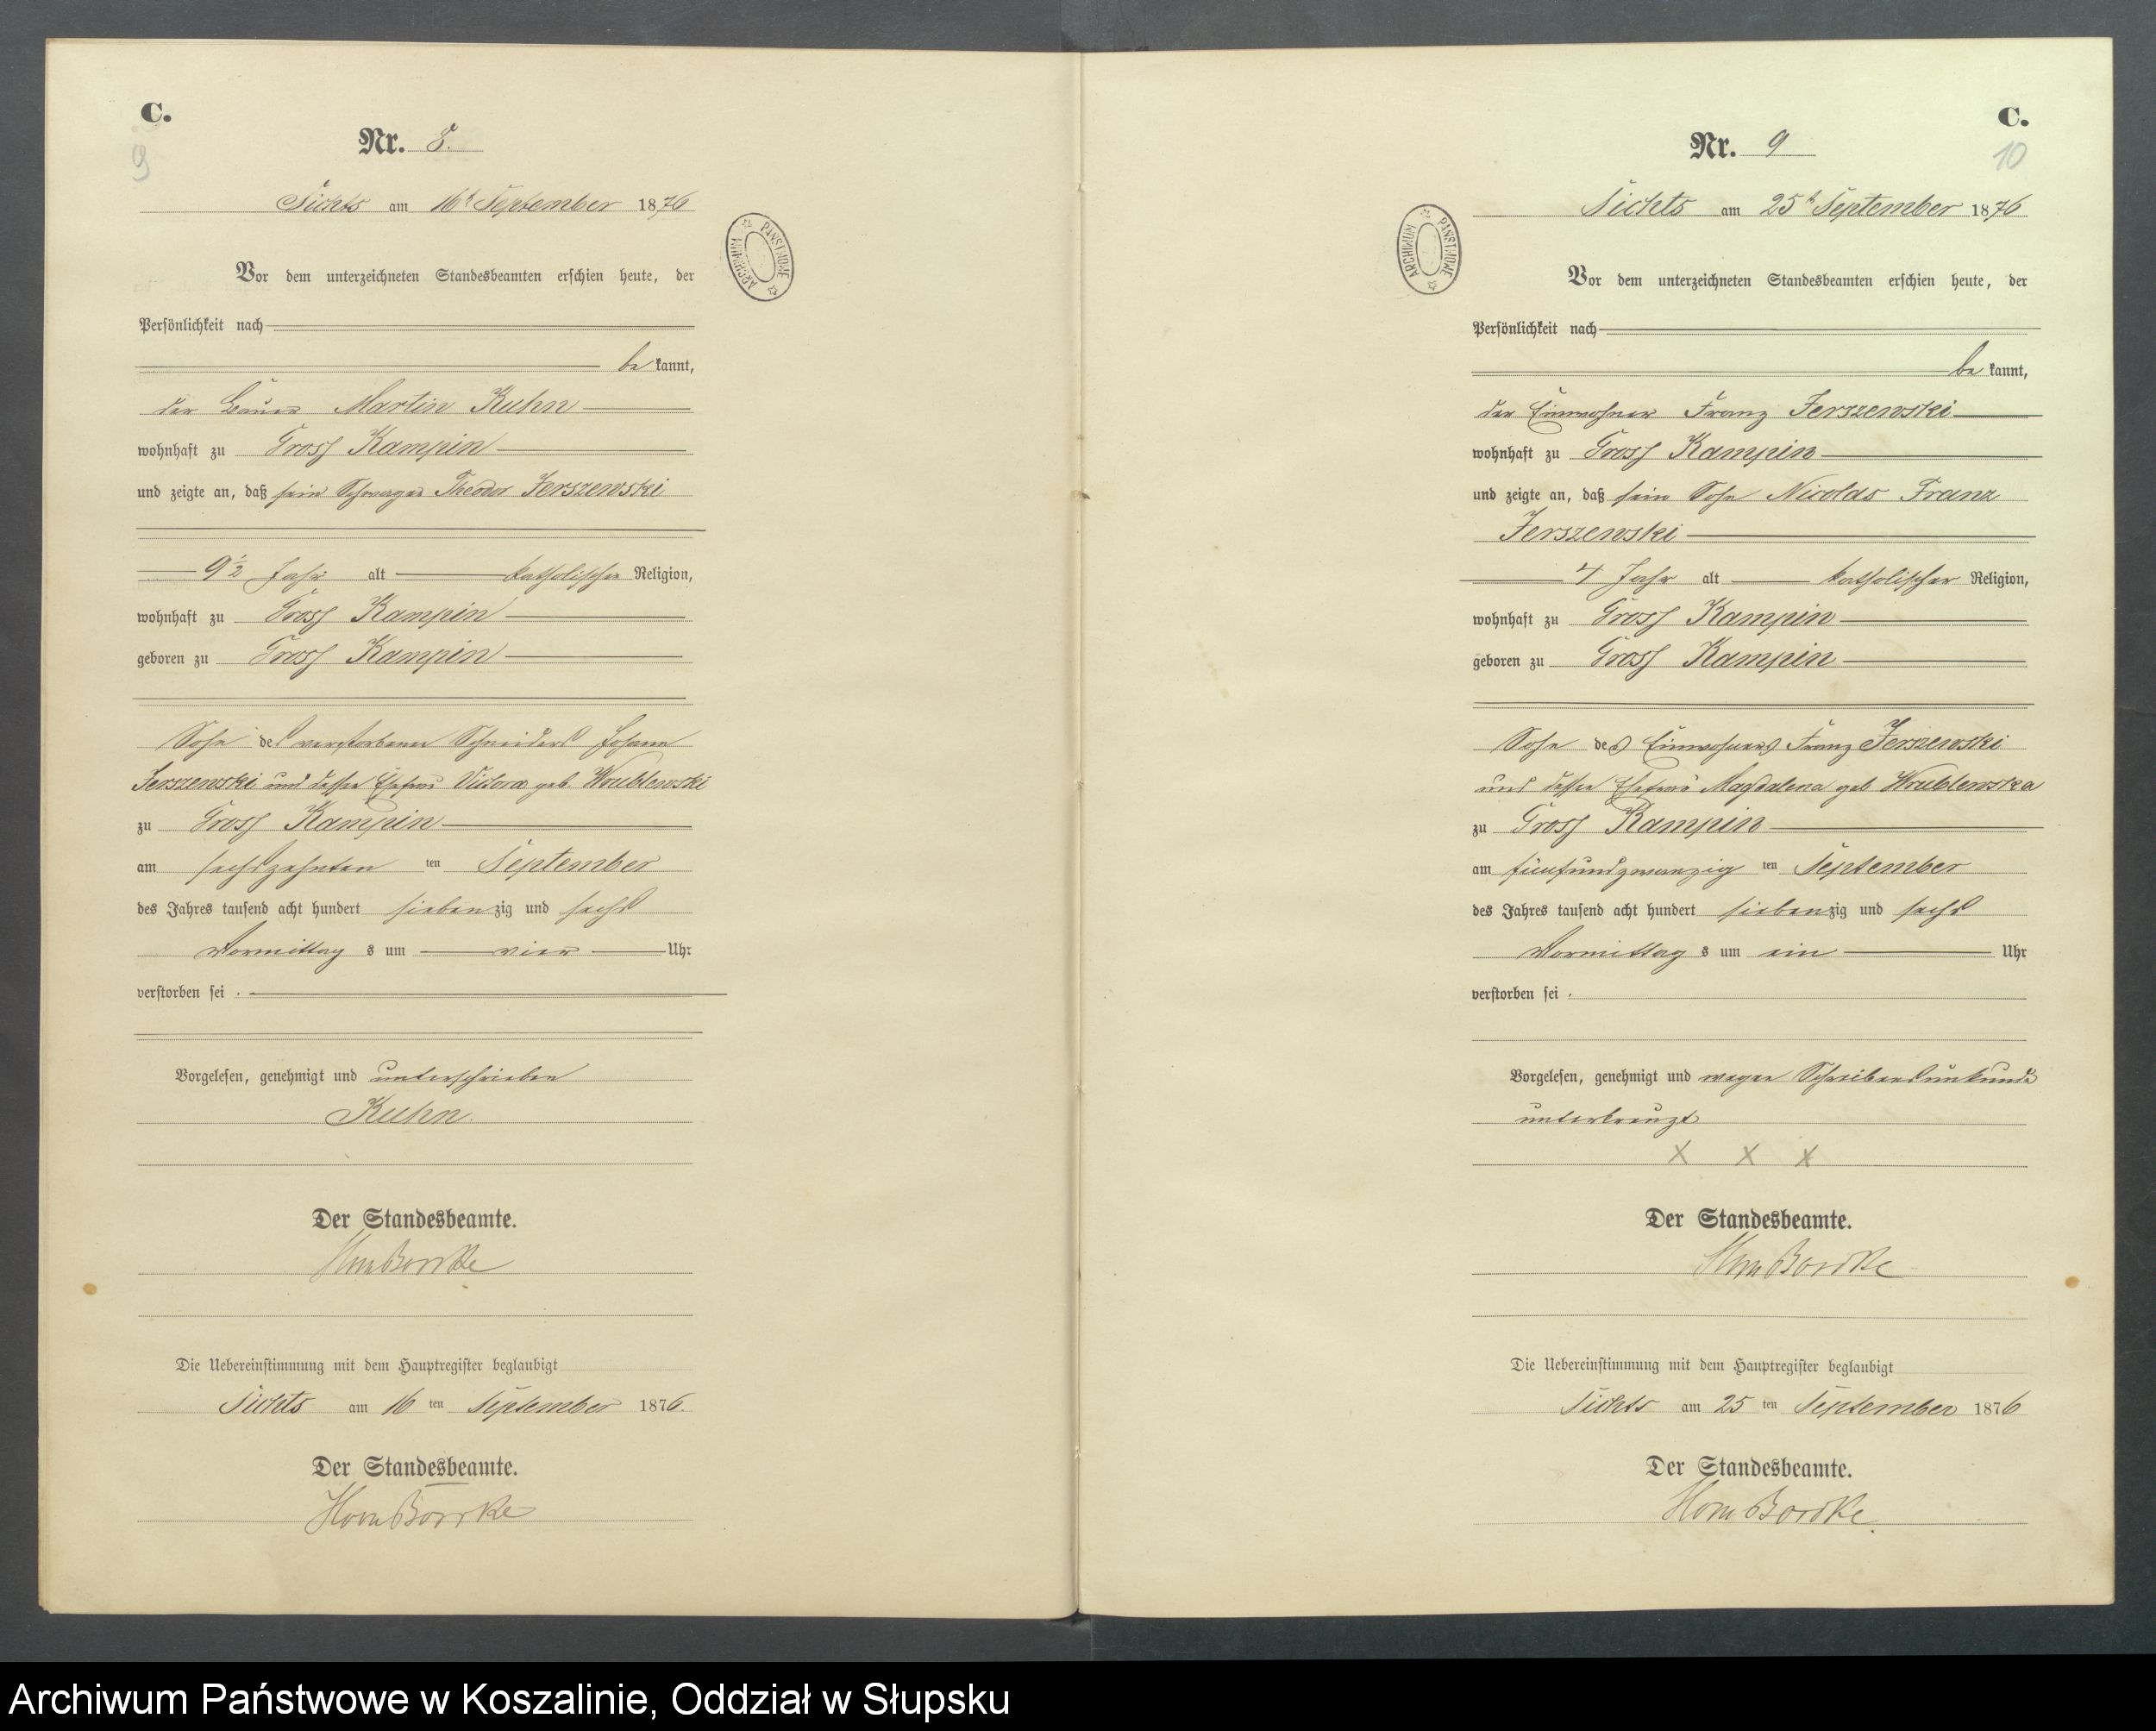 C.
9
Nr. 8.
Sichts am 16t September 1876
Vor dem unterzeichneten Standesbeamten erschien heute, der
Persönlichkeit nach
be kannt,
der Bauer Martin Kuhn
wohnhaft zu Gross Kampin
und zeigte an, daß sein Schwager Theodor Jerszewski
9½ Jahr alt katholischer Religion,
wohnhaft zu Gross Kampin
geboren zu Gross Kampin
Sohn des verstorbenen Schneiders Johann
Jerszewski und dessen Ehefrau Victora geb. Wrublewski
zu Gross Kampin
am sechszehnten ten September
des Jahres tausend acht hundert siebenzig und sechs
Vormittag s um vier Uhr
verstorben sei .
Vorgelesen, genehmigt und unterschrieben
Kuhn.
Der Standesbeamte.
Die Uebereinstimmung mit dem Hauptregister beglaubigt
Sichts am 16 ten September 1876.
Der Standesbeamte.
ARCHIWUM PAŃSTWOWE
C.
10
Nr. 9
Sichts am 25t September 1876
Vor dem unterzeichneten Standesbeamten erschien heute, der
Persönlichkeit nach
be kannt,
der Einwohner Franz Jerszewski
wohnhaft zu Gross Kampin
und zeigte an, daß sein Sohn Nicolas Franz
Jerszewski
4 Jahr alt katholischer Religion,
wohnhaft zu Gross Kampin
geboren zu Gross Kampin
Sohn des Einwohners Franz Jerszewski
und dessen Ehefrau Magdalena geb Wrublewska
zu Gross Kampin
am fünfundzwanzig ten September
des Jahres tausend acht hundert siebenzig und sechs
Vormittag s um ein Uhr
verstorben sei .
Vorgelesen, genehmigt und wegen Schreibensunkunde
unterkreuzt
X X X
Der Standesbeamte.
Die Uebereinstimmung mit dem Hauptregister beglaubigt
Sichts am 25 ten September 1876
Der Standesbeamte.
ARCHIWUM PAŃSTWOWE
Archiwum Państwowe w Koszalinie, Oddział w Słupsku